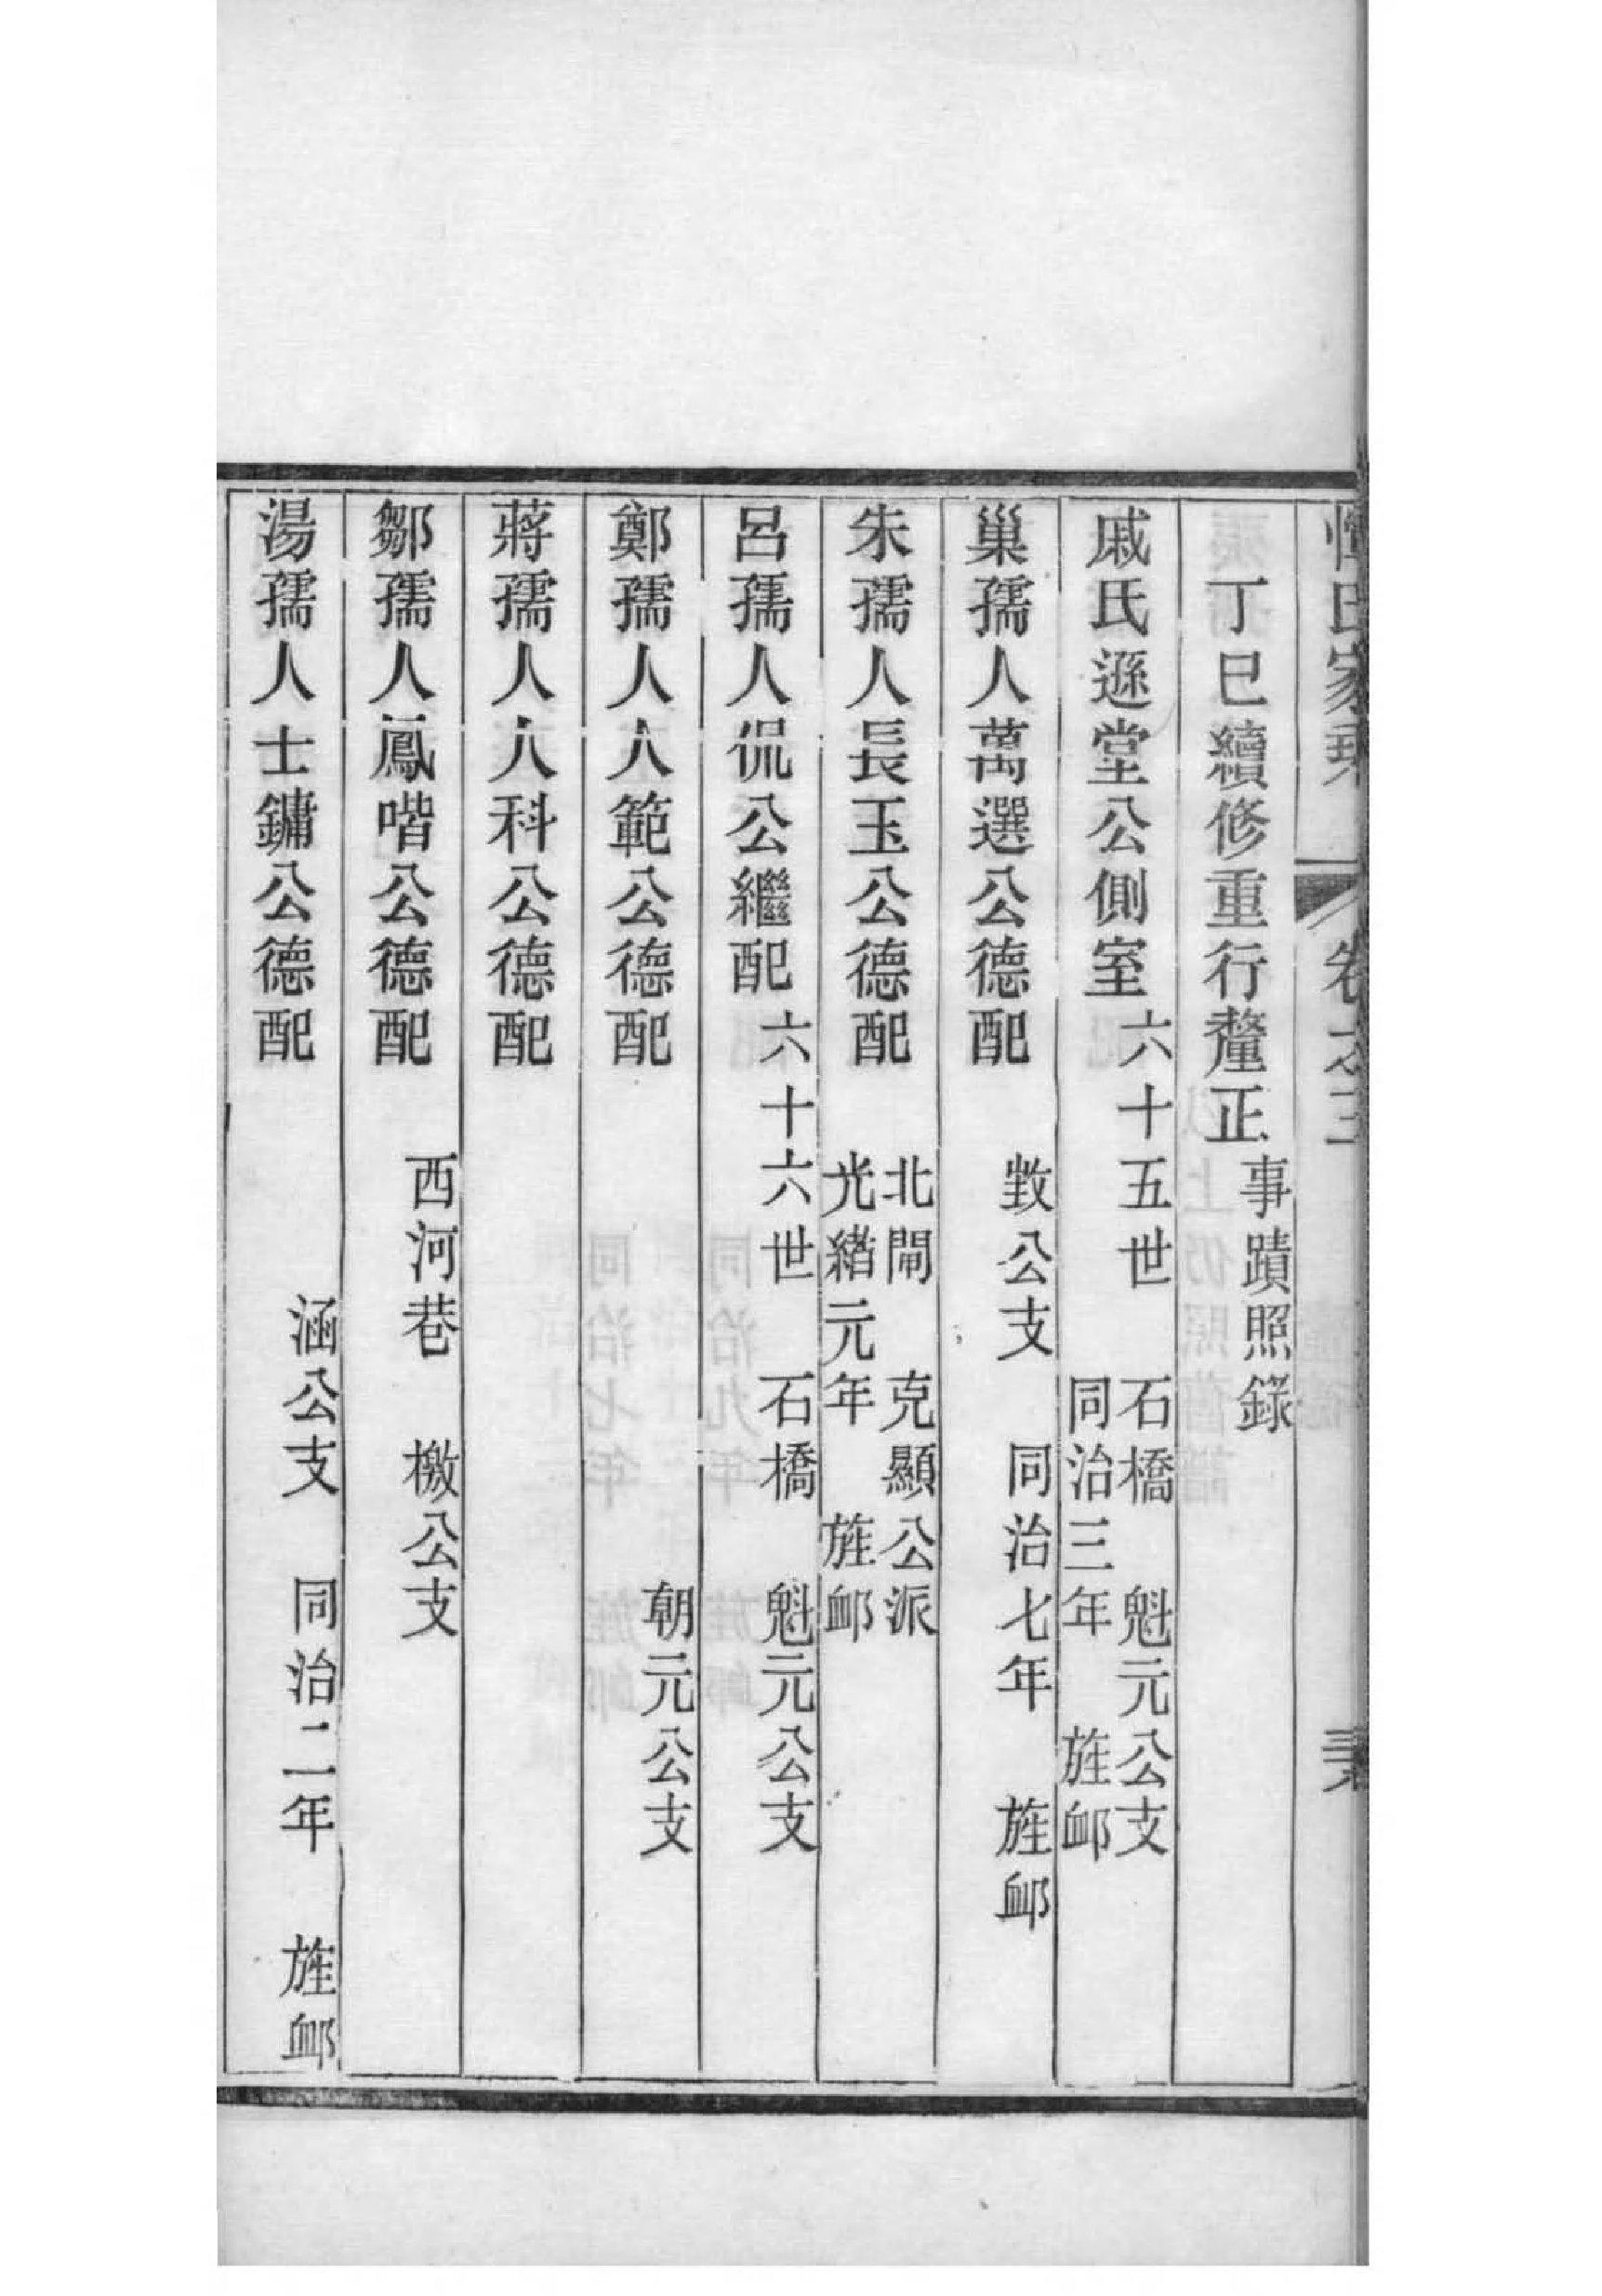 惲氏家乘 卷之三
丁巳續修重行釐正 事蹟照錄
戚氏遜堂公側室 六十五世 石橋 魁元公支
同治三年 旌卹
巢孺人萬選公德配 敳公支 同治七年 旌卹
朱孺人長玉公德配 北閘 克顯公派
光緒元年 旌卹
呂孺人侃公繼配 六十六世 石橋 魁元公支
鄭孺人人範公德配 朝元公支
蔣孺人人科公德配
鄒孺人鳳喈公德配 西河巷 檄公支
湯孺人士鏞公德配 涵公支 同治二年 旌卹